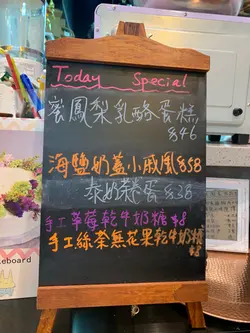 Today Special
蜜鳳梨乳酪蛋糕
$46
海鹽奶蓋小戚風$58
泰奶茶卷蛋$38
手工草莓乾牛奶糖$8
手工絲茶無花果乾牛奶糖
$8
eboard